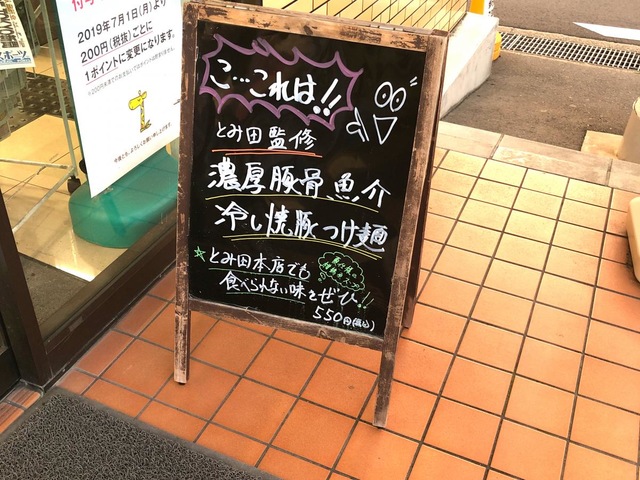 2019年7月1日(月)より
200円(税抜)ごとに
1ポイントに変更になります。
こ…これは!!
とみ田監修
濃厚豚骨魚介
冷し焼豚つけ麺
☆とみ田本店でも
食べられない味をぜひ!!
550円(税込)